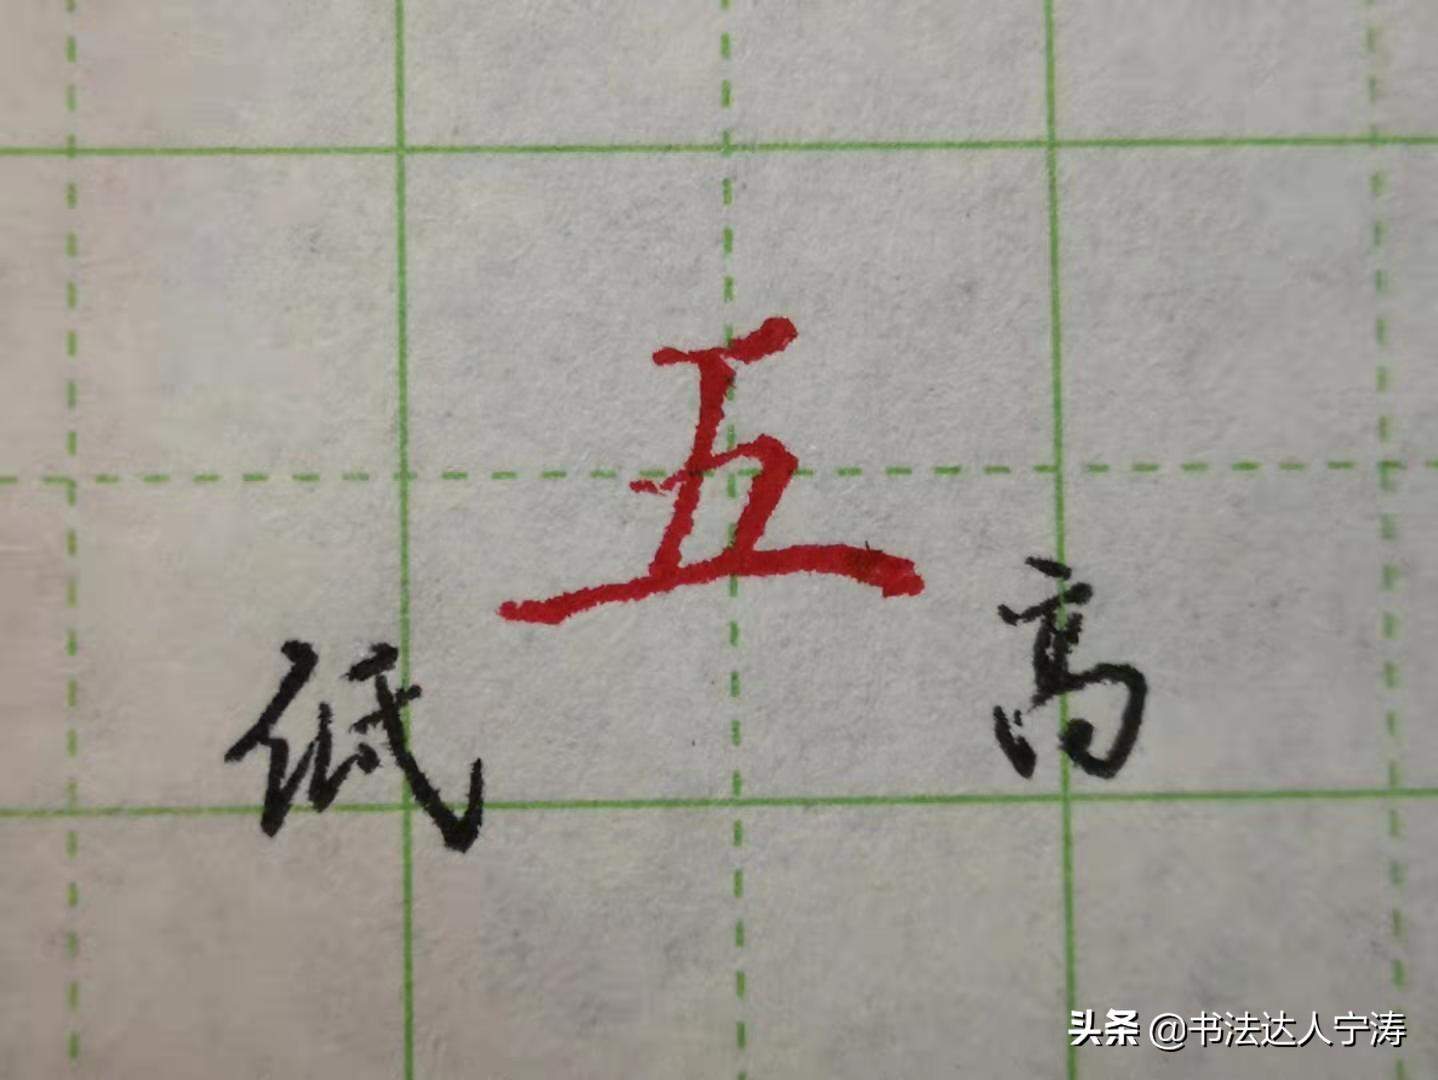 五
低 高
头条 @书法达人宁涛